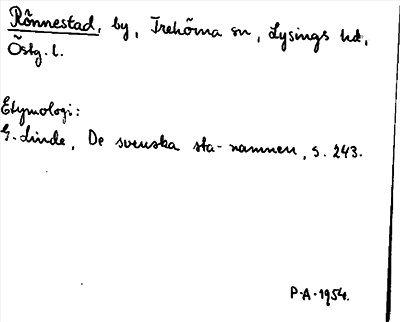 Rõnnestad, by, Trehõrna sn, Lysings hd,
Õstg. l.
Etymologi:
G. Linde, De svenska sta-namnen, s. 243.
P.A. 1954.